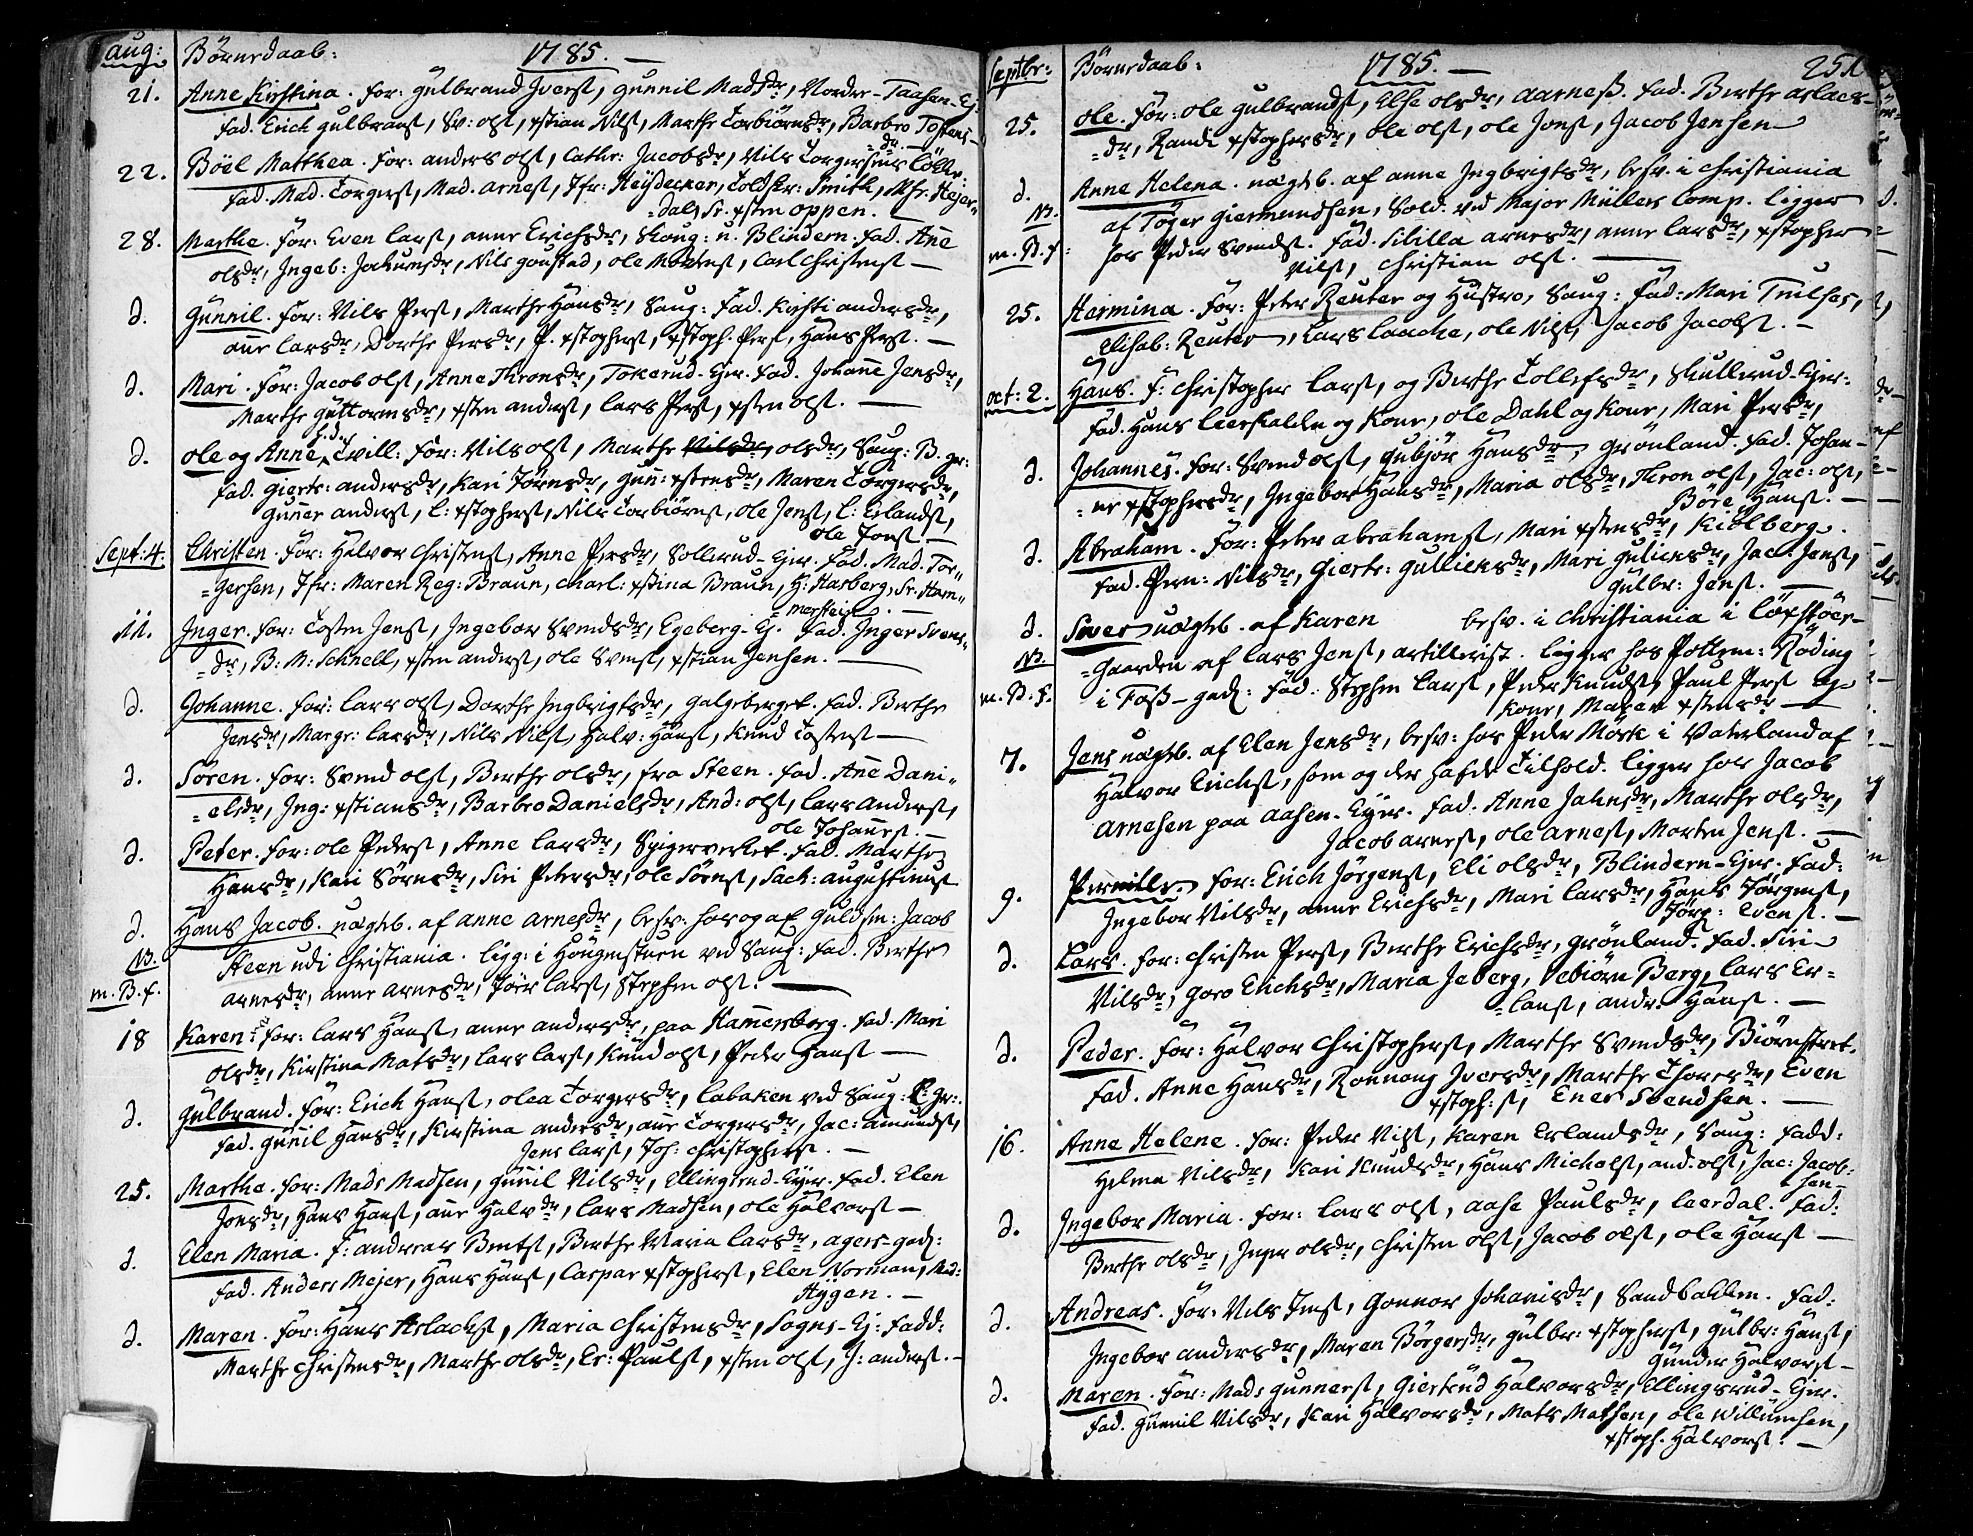 aug: Börnedaab: 1785. —
21. Anne Kirstina. For: Gulbrand Iverst, Gunnil Madsdr, Nordre-Taasen-Ej.
Fad. Erich Gulbranst, Sv: olst, xstian Nilst, Marthe Torbiörnsdr, Barbro Tostens-
=dr. —
22. Böel Matthea. For: anders olst, Cathr: Jacobsdr, Nils Torgersens
Fad. Mad. Torgerst, Mad. arnest, Jfr: Heÿdecker, Toldbr: Smith, Mfr. Hejer-
=dal, Sr. xsten oppen. —
28. Marthe. For: Even Larst, anne Erichsdr, Skoug: u. Blindern. Fad. Ane
olsdr, Ingeb: Jochumsdr, Nils Goustad, ole Mortenst, Carl Christenst —
d. Gunnil. For: Nils Perst, Marthe Hansdr, Saug: Fad. Kirsti andersdr,
ane Larsdr, Dorthe Persdr, P. xstopherst, xstoph. Perst, Hans Perst. —
d. Mari. For: Jacob olst, Anne Thronsdr, Tokerud-Ejer. Fad. Johane Jensdr,
Marthe Guttormsdr, xsten anderst, Lars Perst, xsten olst. —
d. ole og Anne, Tvill: For: Nils olst, Marthe Nilsdr, olsdr, Saug: B. gr:
Fad. Giertr: andersdr, Kari Törnsdr, Gun: xstensdr, Maren Torgersdr,
Guner anderst, L: xstopherst, Nils Torbiörnst, ole Jenst, L: Erlandst,
ole Jonst —
Sept: 4. Christen. For: Halvor Christenst, Anne Persdr, Sollerud-Ejer. Fad. Mad. Tor-
=gersen, Jfr: Maren Reg: Braun, Charl: xstina Braun, H: Harberg, Sr. Ham-
=merstein. —
11. Inger. For: Tosten Jenst, Ingebor Svendsdr, Egeberg-Ej. Fad. Inger Svens-
=dr, B: M: Schnell, xsten anderst, ole Svenst, xstian Jensen. —
d. Johanne. For: Lars olst, Dorthe Ingbrigtsdr, Galgeberget. Fad. Berthe
Jensdr, Margr: Larsdr, Nils Nilst, Halv: Hanst, Knud Tostenst —
d. Sören. For: Svend olst, Berthe olsdr, fra Steen. Fad. Ane Dani-
=elsdr, Ing: xstiansdr, Barbro Danielsdr, And: olst, Lars Anderst,
ole Johanest. —
d. Peter. For: ole Pederst, Anne Larsdr, Spigerverket. Fad. Marthe
Hansdr, Kari Sörnsdr, Siri Petersdr, ole Sörnst, Zach: augustinust
d. Hans Jacob. uægteb. af anne arnesdr, besv: hos og af Guldsm: Jacob
NB. Steen udi Christiania. Ligg: i Hougenstuen ved Saug: Fad. Berthe
m. B. f. arnesdr, anne arnesdr, Töer Larst, Stephen olst. —
18 Karen. For: Lars Hanst, anne andersdr, paa Hammersborg. Fad. Mari
olsdr, Kirstina Matsdr, Lars Larst, Knud olst, Peder Hanst —
d. Gulbrand. For: Erich Hanst, olea Torgersdr, Labaken ved Saug: B gr:.
Fad. Gunil Hansdr, Kirstina andersdr, ane Torgersdr, Jac: amundst,
Jens Larst, Joh: Christopherst. —
25. Marthe. For: Mads Madsen, Gunil Nilsdr, Ellingsrud-Ejer. Fad. Elen
Jonsdr, Hans Hanst, ane Halvdr, Lars Madsen, ole Halvorst —
d. Elen Maria. F: andreas Berntst, Berthe Maria Larsdr, agers-gad:
Fad. Anders Mejer, Hans Hanst, Caspar xstopherst, Elen Norman, Md:
Hÿgen. —
d. Maren. For: Hans Aslachst, Maria Christensdr, Sogns-Ej: Fadd:
Marthe Christensdr, Marthe olsdr, Er: Paulst, xsten olst, J: anderst. —
Septbr: Börnedaab: 1785. — 251
25. ole. For: ole Gulbrandst, Else olsdr, Aarness. Fad. Berthe aslacs-
=dr, Randi xstophersdr, ole olst, ole Jonst, Jacob Jensen
d. Anne Helena. uægteb. af anne Ingbrigtsdr, besv. i Christiania
NB. af Töger Giermundsen, Sold. ved Major Müllers Comp. ligger
m. B. f: hos Peder Svendst. Fad. Sibilla arnesdr, anne Larsdr, xstopher
Nilst, Christian olst. —
25. Hermina. For: Peter Reuter og Hustro, Saug: Fad: Mari Truilses,
Elisab: Reuter, Lars Laache, ole Nilst, Jacob Jacobst. —
oct: 2. Hans. F: Christopher Larst, og Berthe Tollefsdr, Skullerud-Ejer:
Fad. Hans Leerskalden og Kone, ole Dahl og Kone, Mari Persdr,
d. Johannes. For: Svend olst, Gubjör Hansdr, Grönland. Fad. Johan-
=ne xstophersdr, Ingebor Hansdr, Maria olsdr, Thron olst, Jac: olst,
Böre Hanst. —
d. Abraham. For: Peter abrahamst, Mari xstensdr, Kiölberg.
Fad. Pern: Nilsdr, Giertr: Gulliksdr, Mari Guliensdr, Jac: Jenst,
Gulbr: Jenst. —
d. Siver uægteb. af Karen besv. i Christiania i Töystöer-
NB. =Gaarden af Lars Jenst, artillerist. ligger hos Pottem: Röding
m. B. f. i Foss-gad: Fad. Stephen Larst, Peder Knudst, Paul Perst og
Kone, Maren xstensdr —
7. Jens uægteb. af Elen Jensdr, besv: hos Peder Mörk i Vaterland af
Halvor Erichst, som og der hafde Tilhold. ligger hos Jacob
arnesen paa aasen-Ejer. Fad. Anne Jahnsdr, Marthe olsdr,
Jacob arnest, ole arnest, Morten Jenst. —
9. Pernille. For: Erich Jörgenst, Eli olsdr, Blindern-Ejer. Fad:
Ingebor Nilsdr, anne Erichsdr, Mari Larsdr, Hans Jörgenst,
Jörg: Evenst. —
d. Lars. For: Christen Perst, Berthe Erichsdr, Grönland. Fad. Siri
Nilsdr, Goro Erichsdr, Maria Jeberg, Vebiörn Berg, Lars Er-
=lanst, andr. Hanst. —
d. Peder. For: Halvor Christopherst, Marthe Svendsdr, Biörnstret.
Fad. Anne Hansdr, Ronnaug Iversdr, Marthe Thoresdr, Even
xstoph:st, Ener Svendsen. —
16. Anne Helene. For: Peder Nilst, Karen Erlandsdr, Saug: Fadd:
Helena Nilsdr, Kari Knudsdr, Hans Micholst, and. olst, Jac: Jacob-
sen —
d. Ingebor Maria. For: Lars olst, aase Paulsdr, Leerdal. Fad:
Berthe olsdr, Inger olsdr, Christen olst, Jacob olst, ole Hanst —
d. Andreas. For: Nils Jenst, Gonnor Johanisdr, Sandbakken. Fad:
Ingebor andersdr, Maren Börgersdr, Gulbr: xstopherst, Gulbr: Hanst,
Gunder Halvorst —
d. Maren. For: Mads Gunnerst, Giertrud Halvorsdr, Ellingsrud-Ejer.
Fad. Gunnil Nilsdr, Kari Halvorsdr, Mats Matsen, ole Willumsen,
xstoph. Halvorst. —